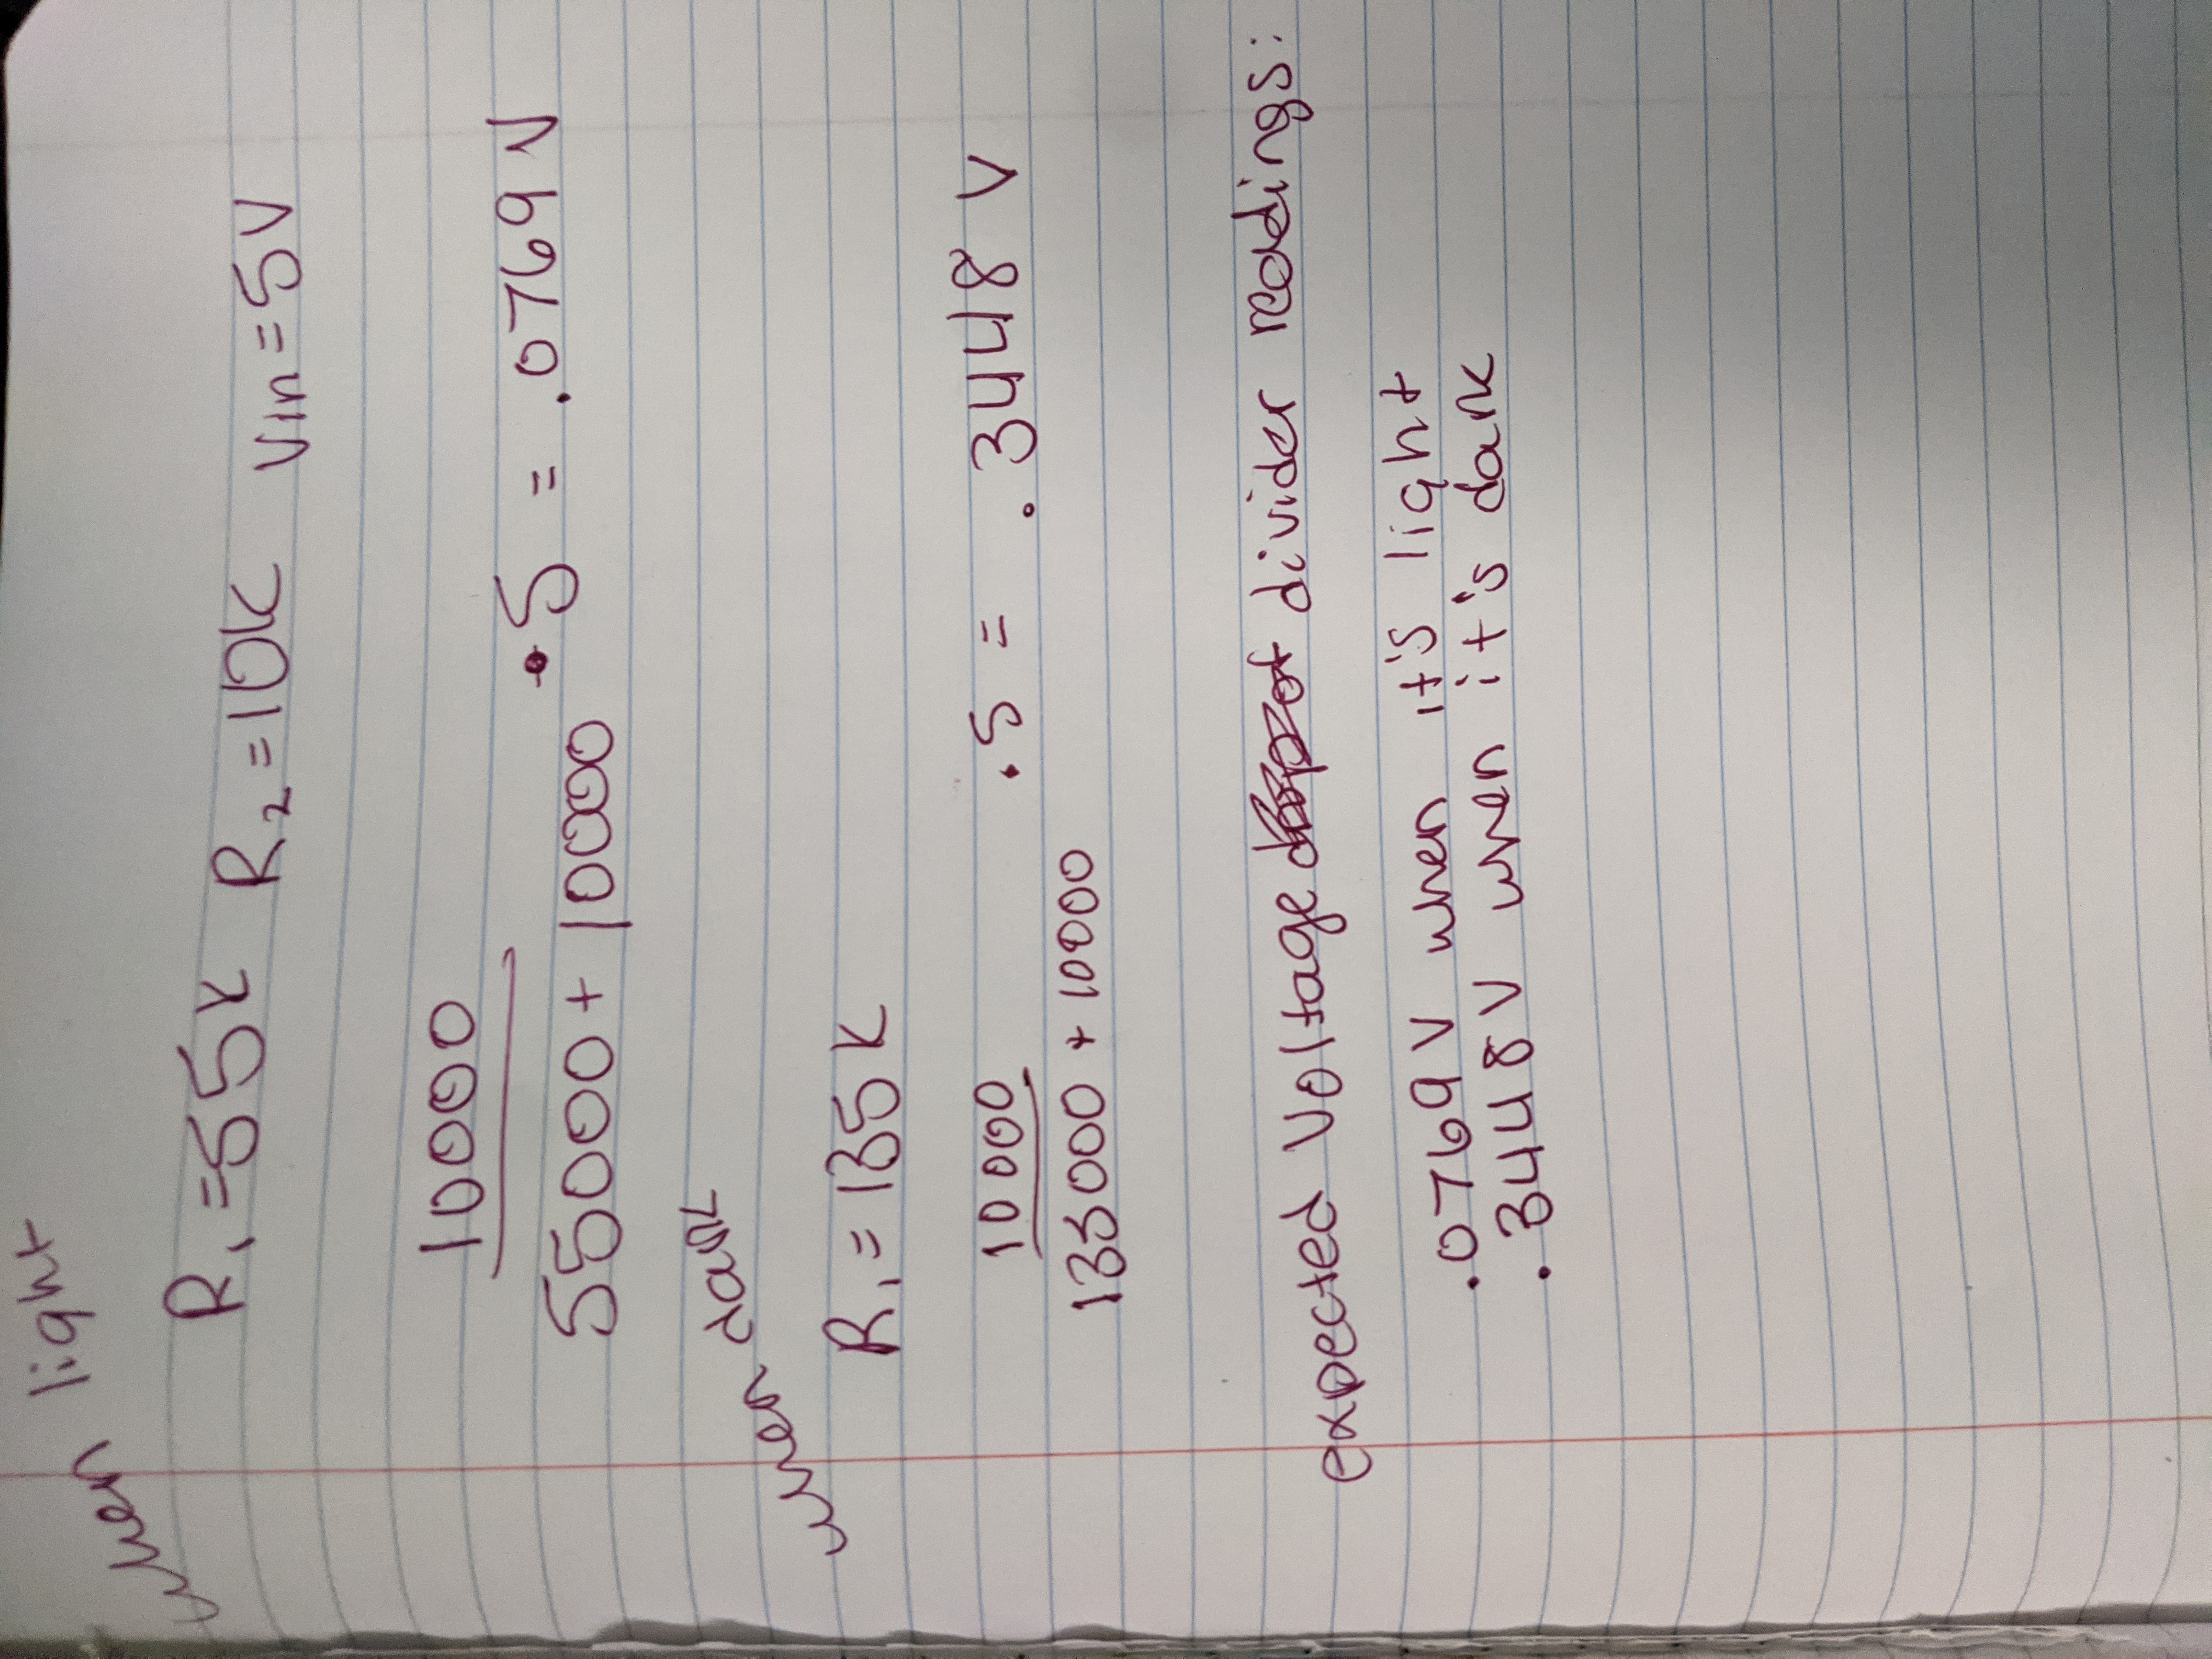 when light
R₁ = 55K R₂ = 10K Vin = 5V
10000
55000 + 10000 • 5 = .0769 V
when dark
R₁ = 135K
10000
135000 + 10000 . 5 = .3448 V
expected Voltage divider readings:
.0769 V when it's light
.3448 V when it's dark